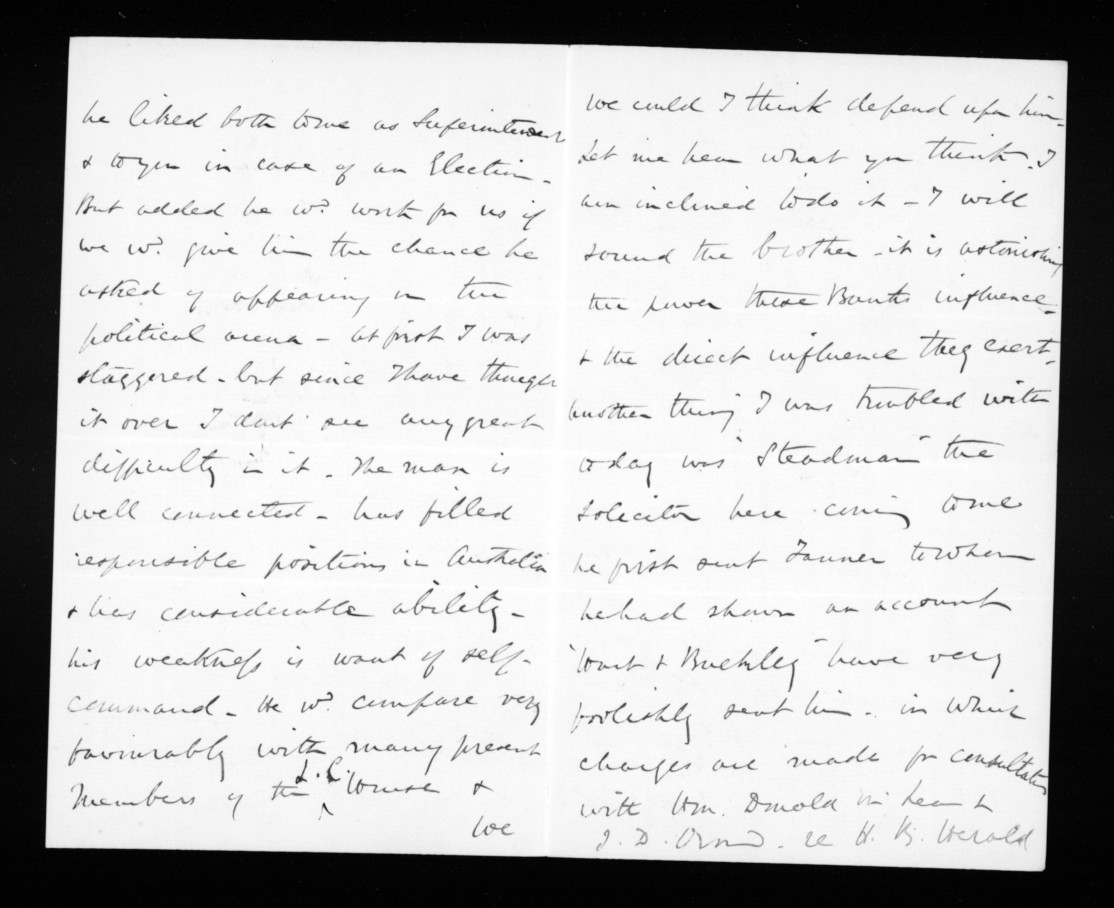 he liked both to me as Superintendent
& to you in case of an Election -
But added he wd. work for us if
we wd. give him the chance he
asked of appearing in the
political arena - at first I was
staggered - but since I have thought
it over I dont see any great
difficulty in it - The man is
well connected - has filled
responsible positions in Australia
& has considerable ability -
his weakness is want of self-
command - He wd. compare very
favourably with many present
Members of the L.C. House &
we
we could I think depend upon him -
Let me hear what you think - I
am inclined to do it - I will
sound the brother - it is astonishing
the power these Banks influence -
& the direct influence they exert -
Another thing I was troubled with
today was "Steadman" the
Solicitor here coming to me
he first sent Tanner to whom
he had shown an account
"Hart & Buckley" have very
foolishly sent him - in which
charges are made for consultation
with Hon. Donald McLean &
J. D. Ormd. re H. B. Herald